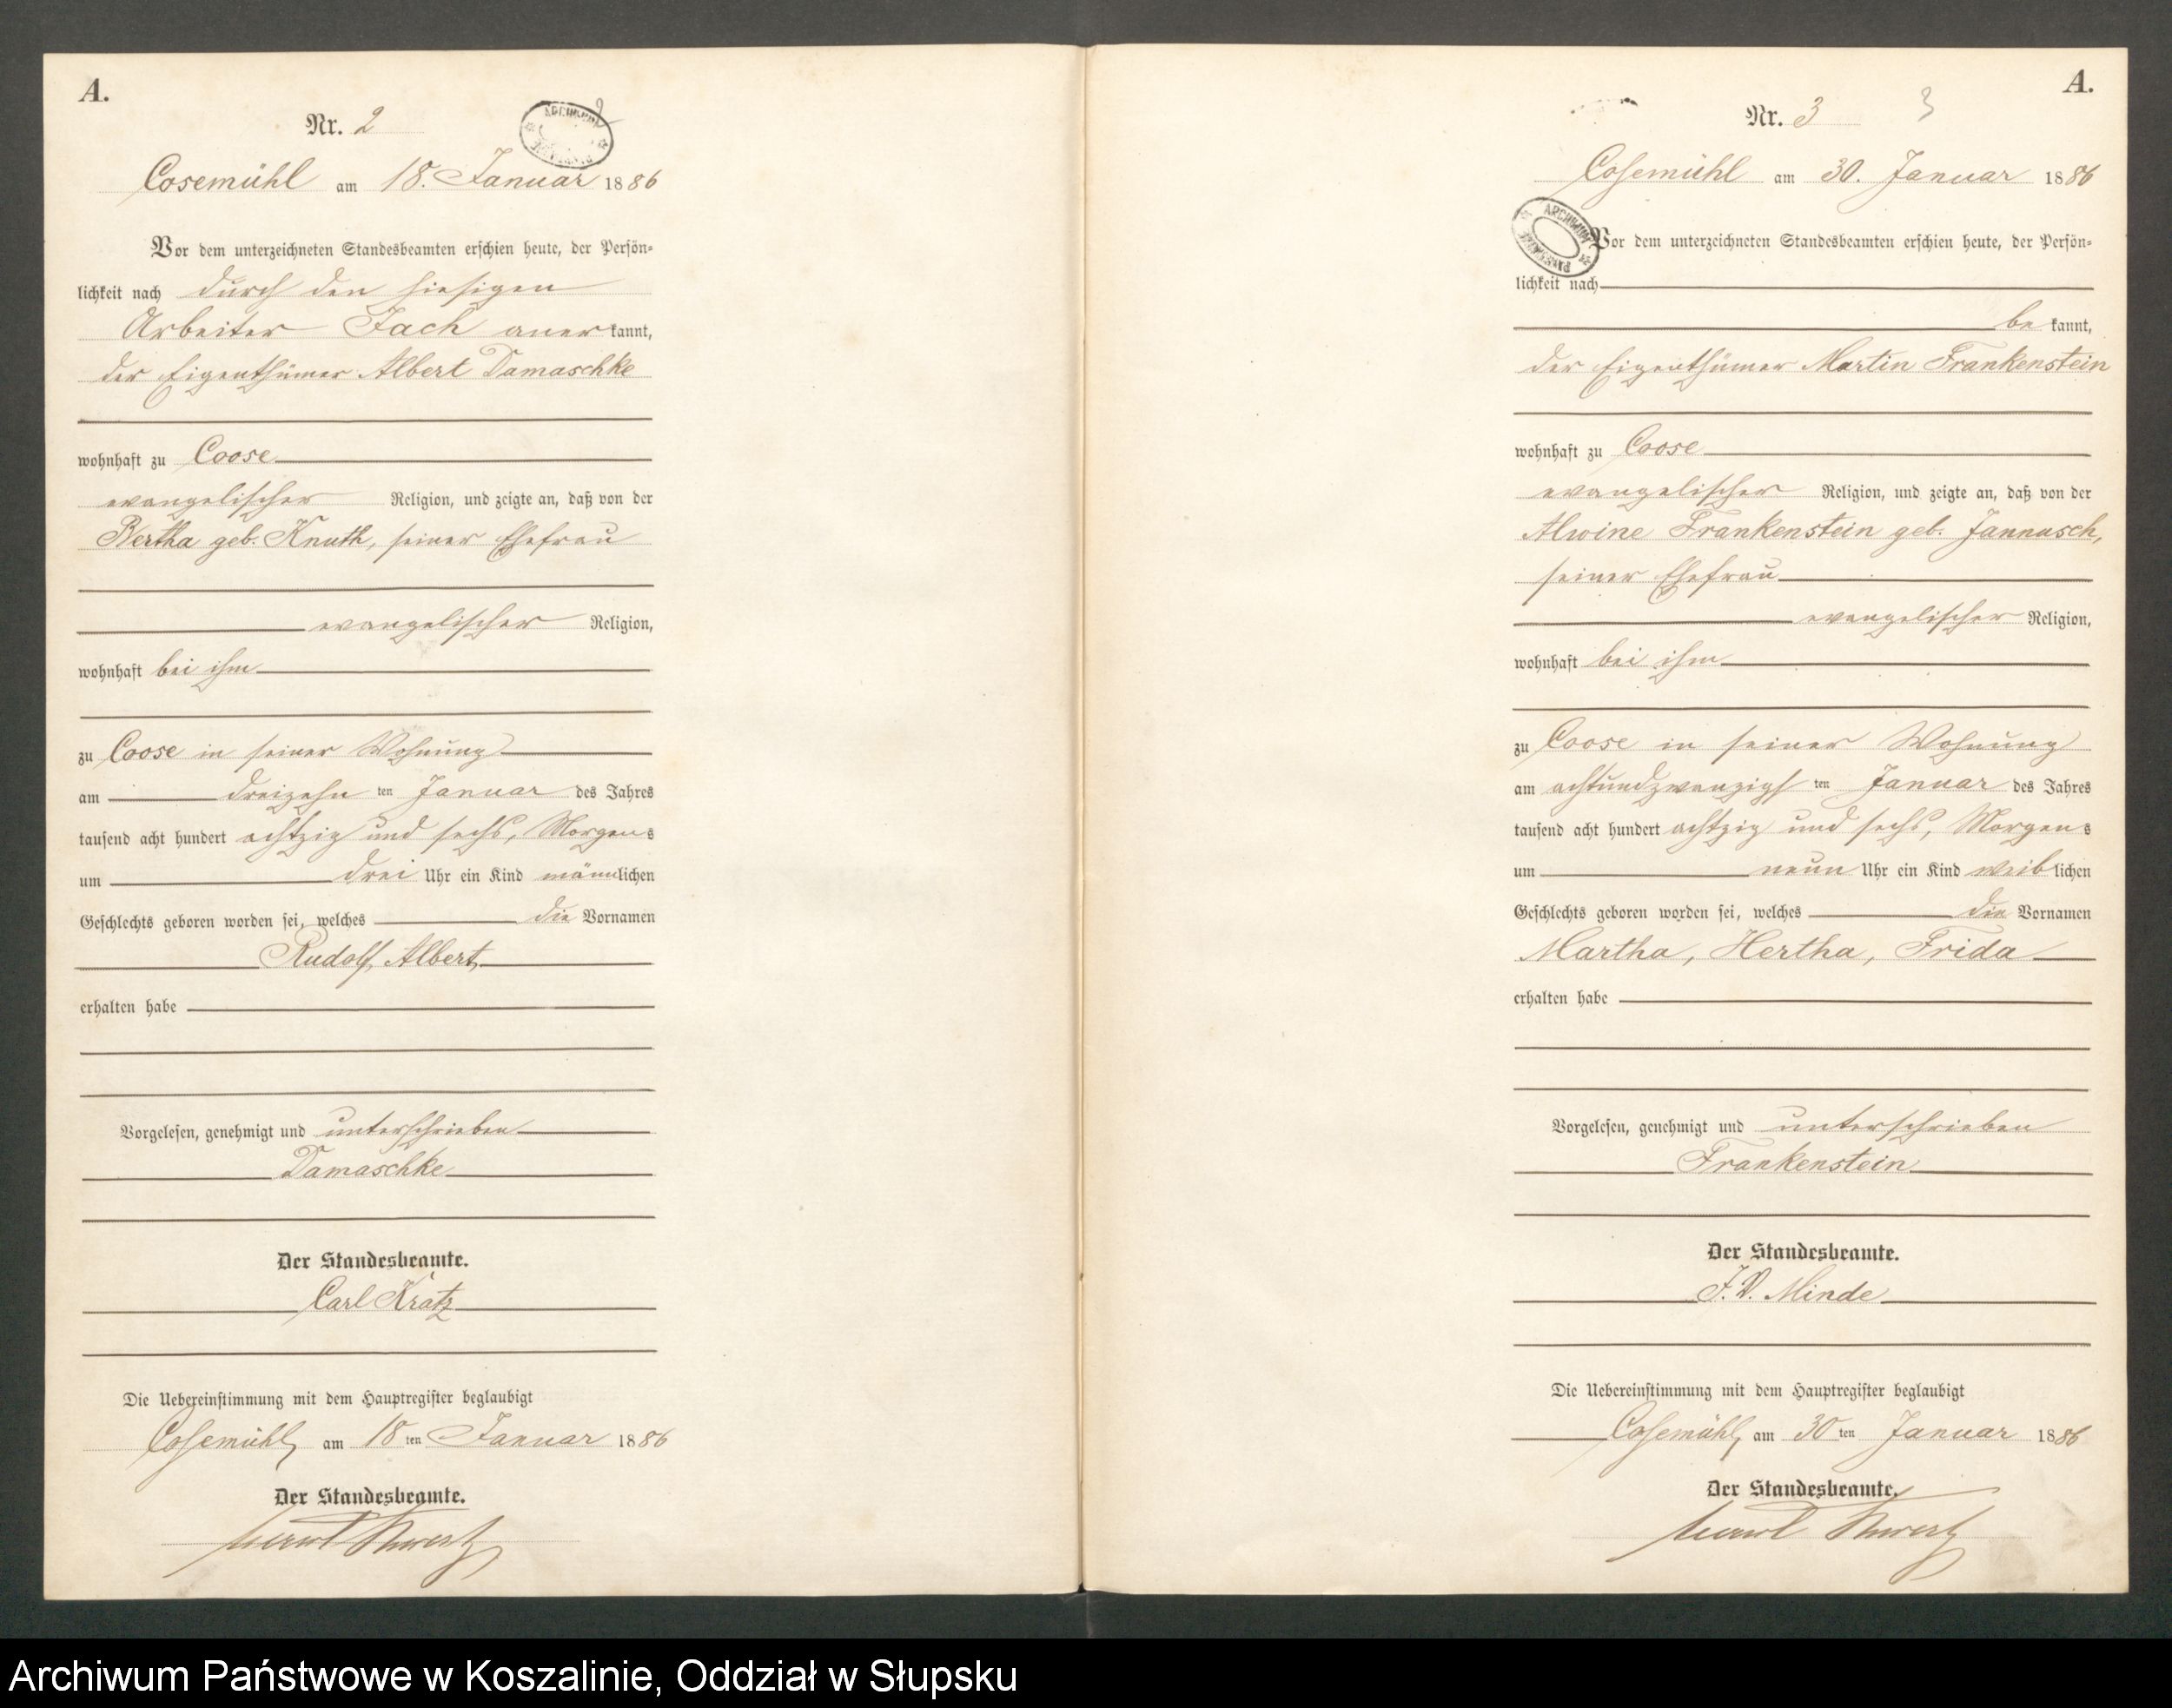 A.
Nr. 2
Cosemühl am 18. Januar 1886
Vor dem unterzeichneten Standesbeamten erschien heute, der Persön-
lichkeit nach durch den hiesigen
Arbeiter Jach anerkannt,
der Eigenthümer Albert Damaschke
wohnhaft zu Coose
evangelischer Religion, und zeigte an, daß von der
Bertha geb. Knuth, seiner Ehefrau
evangelischer Religion,
wohnhaft bei ihm
zu Coose in seiner Wohnung
am dreizehnten Januar des Jahres
tausend acht hundert achtzig und sechs, Morgens
um drei Uhr ein Kind männlichen
Geschlechts geboren worden sei, welches die Vornamen
Rudolf, Albert,
erhalten habe
Vorgelesen, genehmigt und unterschrieben
Damaschke
Der Standesbeamte.
Carl Kratz
Die Uebereinstimmung mit dem Hauptregister beglaubigt
Cosemühl, am 18ten Januar 1886
Der Standesbeamte.
A.
Nr. 3 3
Cosemühl am 30. Januar 1886
ARCHIWUM
Vor dem unterzeichneten Standesbeamten erschien heute, der Persön-
lichkeit nach
bekannt,
der Eigenthümer Martin Frankenstein
wohnhaft zu Coose
evangelischer Religion, und zeigte an, daß von der
Alwine Frankenstein geb. Jannusch,
seiner Ehefrau
evangelischer Religion,
wohnhaft bei ihm
zu Coose in seiner Wohnung
am achtundzwanzigsten Januar des Jahres
tausend acht hundert achtzig und sechs, Morgens
um neun Uhr ein Kind weiblichen
Geschlechts geboren worden sei, welches die Vornamen
Martha, Hertha, Frida
erhalten habe
Vorgelesen, genehmigt und unterschrieben
Frankenstein
Der Standesbeamte.
J. V. Minde
Die Uebereinstimmung mit dem Hauptregister beglaubigt
Cosemühl, am 30ten Januar 1886
Der Standesbeamte.
Archiwum Państwowe w Koszalinie, Oddział w Słupsku